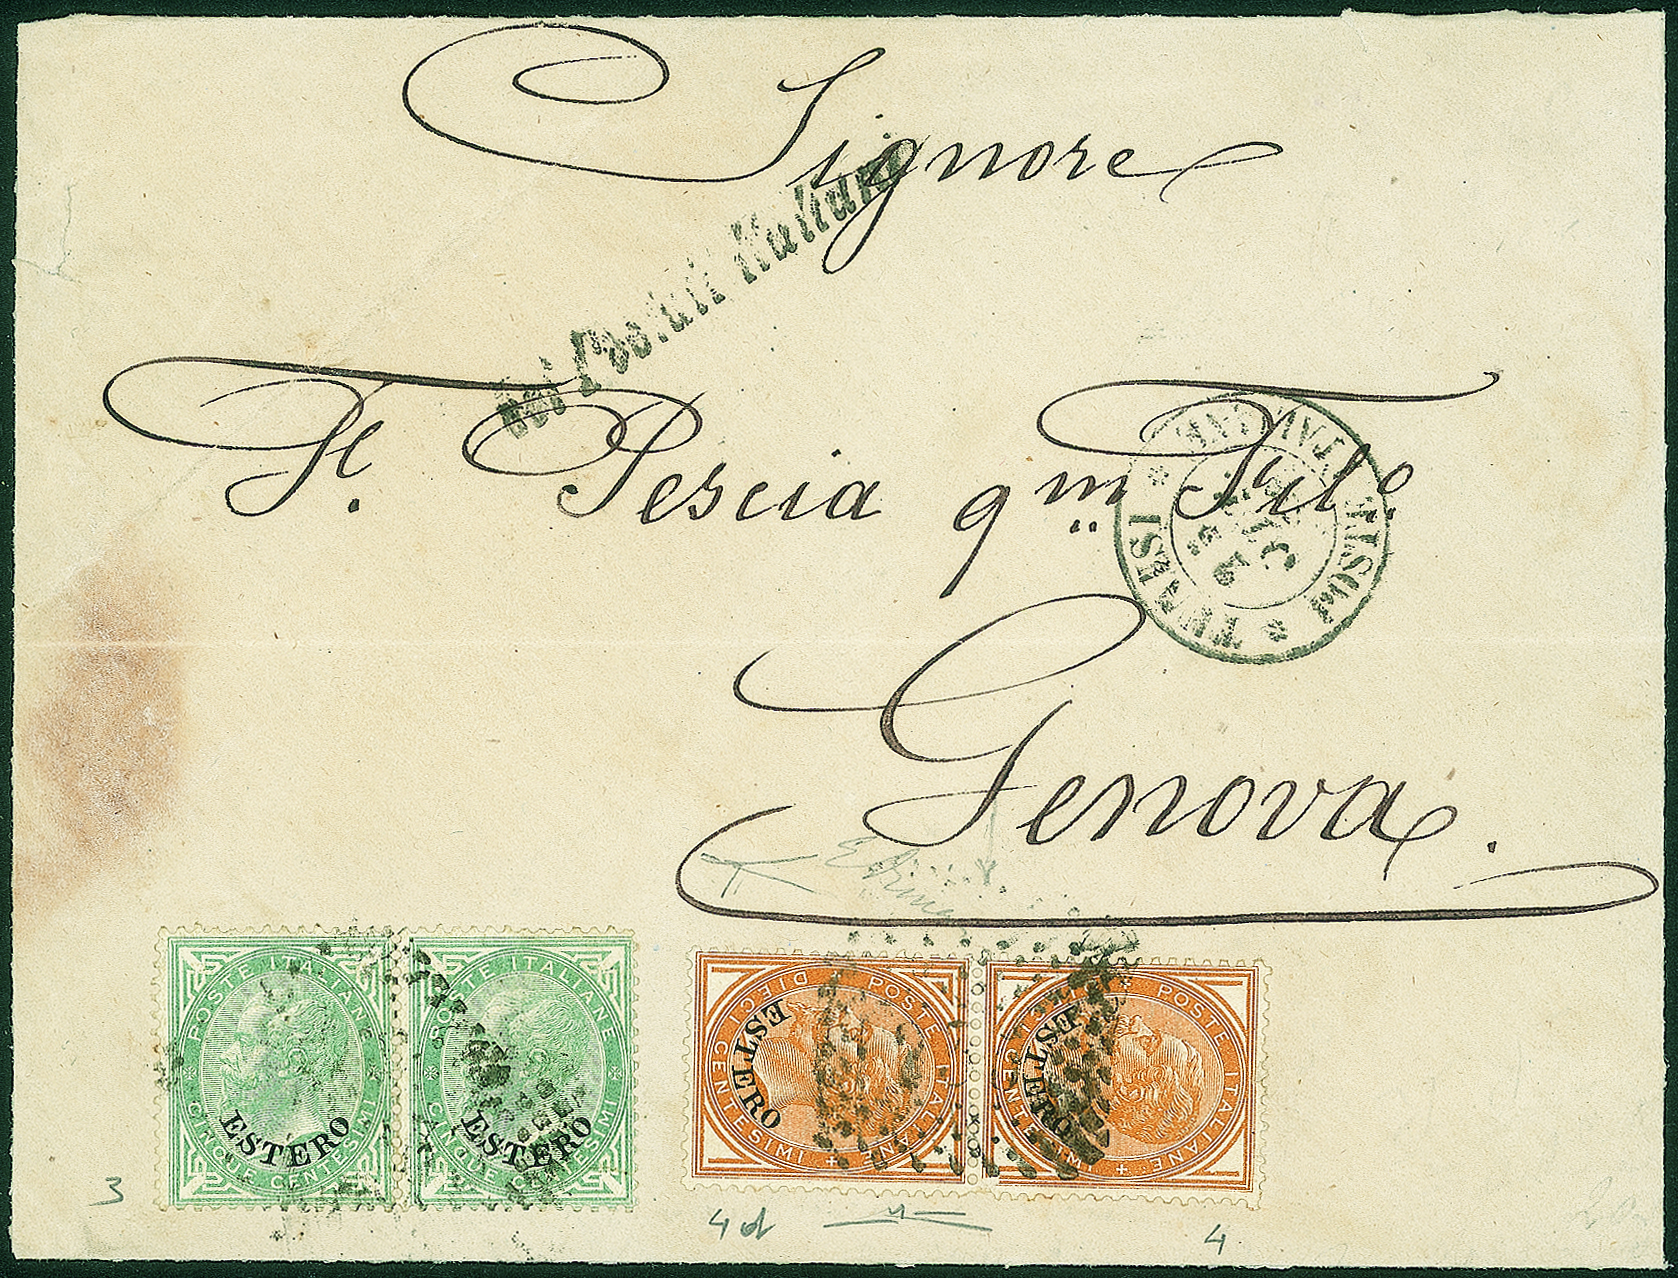 Signore
coi Postali Italiani
F. Pescia qm Fil.o
Genova.
TUNISI * POSTE ITALIANE *
POSTE ITALIANE
CINQUE CENTESIMI
ESTERO
POSTE ITALIANE
CINQUE CENTESIMI
ESTERO
POSTE ITALIANE
DIECI CENTESIMI
ESTERO
POSTE ITALIANE
CENTESIMI
ESTERO
3
4d
4